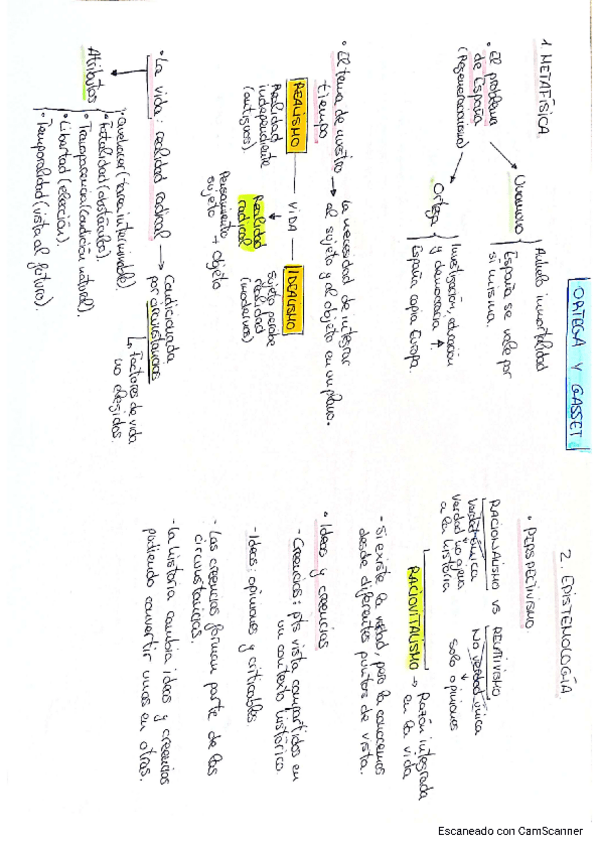 ORTEGA Y GASSET
1. METAFÍSICA.
• El problema
de España
(Regeneracionismo)
Unamuno
Anhelo inmortalidad
España se vale por
sí misma.
Ortega
Investigación, educación
y democracia ↑.
España copia Europa.
• El tema de nuestro
tiempo
→ la necesidad de integrar
al sujeto y al objeto en un plano.
REALISMO — VIDA — IDEALISMO
Realidad
independiente
(antiguos).
Realidad
radical
Sujeto percibe
realidad
(modernos)
Pensamiento → objeto
sujeto
• La vida: realidad radical → Condicionada
por circunstancias
↳ Factores de vida
no elegidos.
Atributos
• quehacer (tarea interminable).
• Fatalidad (obstáculo).
• Transparencia (condición natural).
• Libertad (elección).
• Temporalidad (vista al futuro).
2. EPISTEMOLOGÍA.
• PERSPECTIVISMO.
RACIONALISMO vs RELATIVISMO
Verdad única
Verdad
a la historia
No verdad única
solo opiniones
RACIOVITALISMO → Razón integrada
en la vida
- Si existe la verdad, pero la conocemos
desde diferentes puntos de vista.
• Ideas y creencias
- Creencias: pts vista compartidos en
un contexto histórico
- Ideas: opiniones y criticables.
- Las creencias forman parte de las
circunstancias.
- La historia cambia ideas y creencias
pudiendo convertir unas en otras.
Escaneado con CamScanner